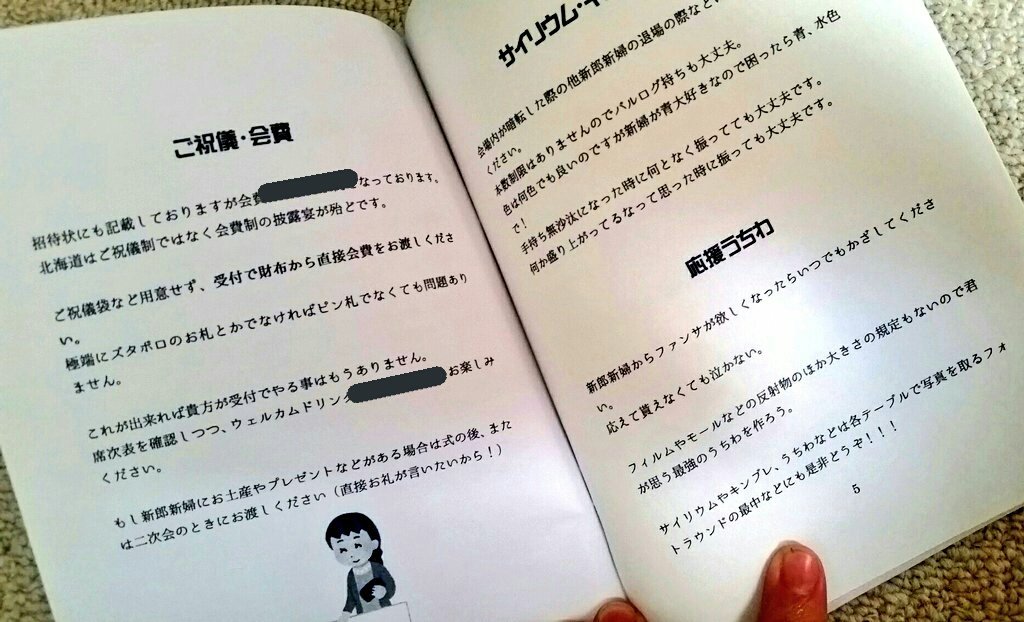 ご祝儀・会費
招待状にも記載しておりますが会費
なっております。
北海道はご祝儀制ではなく会費制の披露宴が殆どです。
ご祝儀袋など用意せず、受付で財布から直接会費をお渡しくださ
い。
極端にズタボロのお札とかでなければピン札でなくても問題あり
ません。
これが出来れば貴方が受付でやる事はもうありません。
席次表を確認しつつ、ウェルカムドリンク
お楽しみ
ください。
もし新郎新婦にお土産やプレゼントなどがある場合は式の後、また
は二次会のときにお渡しください（直接お礼が言いたいから！）
サイリウム・キ
会場内が暗転した際の他新郎新婦の退場の際などに
ください。
本数制限はありませんのでバルログ持ちも大丈夫。
色は何色でも良いのですが新婦が青大好きなので困ったら青、水色
で！
手持ち無沙汰になった時に何となく振ってても大丈夫です。
何か盛り上がってるなって思った時に振っても大丈夫です。
応援うちわ
新郎新婦からファンサが欲しくなったらいつでもかざしてくださ
い。
応えて貰えなくても泣かない。
フィルムやモールなどの反射物のほか大きさの規定もないので君
が思う最強のうちわを作ろう。
サイリウムやキンブレ、うちわなどは各テーブルで写真を取るフォ
トラウンドの最中などにも是非どうぞ！！！
5